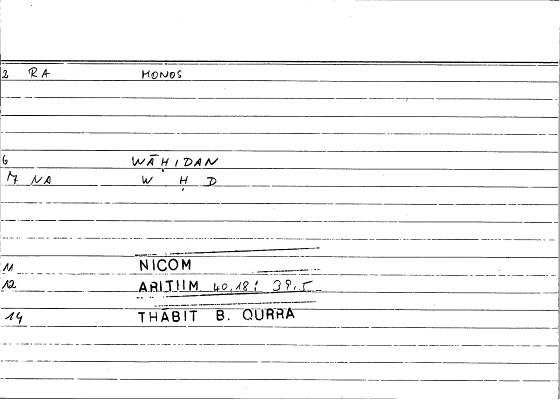 2 RA MONOS
6 WĀḤIDAN
17 NA W Ḥ D
11 NICOM
12 ARITIIM 40,18; 39,5
14 THĀBIT B. QURRA